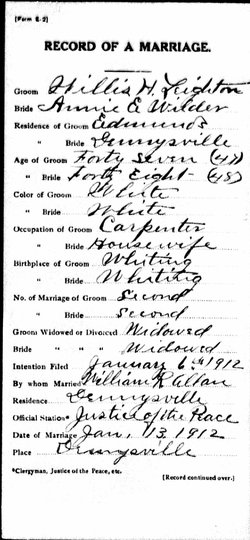 [Form E-2]
RECORD OF A MARRIAGE.
Groom Willis H. Leighton
Bride Annie E. Wilder
Residence of Groom Edmunds
" Bride Dennysville
Age of Groom Forty Seven (47)
" Bride Forty Eight (48)
Color of Groom White
" Bride White
Occupation of Groom Carpenter
" Bride Housewife
Birthplace of Groom Whiting
" Bride Whiting
No. of Marriage of Groom Second
" Bride Second
Groom Widowed or Divorced Widowed
Bride " " Widowed
Intention Filed January 6th 1912
By whom Married* William R Allan
Residence Dennysville
Official Station* Justice of the Peace
Date of Marriage Jan, 13, 1912
Place Dennysville
*Clergyman, Justice of the Peace, etc.
[Record continued over.]